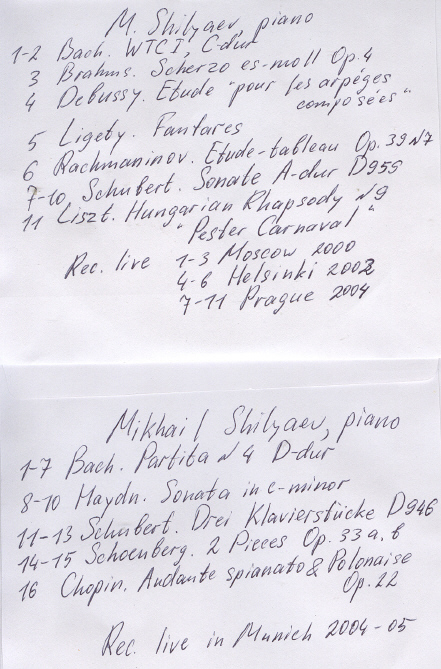 M. Shilyaev, piano
1-2 Bach. WTC I, C-dur
3 Brahms. Scherzo es-moll Op. 4
4 Debussy. Etude "pour les arpèges
composées"
5 Ligety. Fanfares
6 Rachmaninov. Etude-tableau Op. 39 N7
7-10, Schubert. Sonate A-dur D959
11 Liszt. Hungarian Rhapsody N9
"Pester Carnaval"
Rec. live 1-3 Moscow 2000
4-6 Helsinki 2002
7-11 Prague 2004
Mikhail Shilyaev, piano
1-7 Bach. Partita N 4 D-dur
8-10 Haydn. Sonata in c-minor
11-13 Schubert. Drei Klavierstücke D946
14-15 Schoenberg. 2 Pieces Op. 33 a, b
16 Chopin. Andante spianato & Polonaise
Op. 22
Rec. live in Munich 2004-05